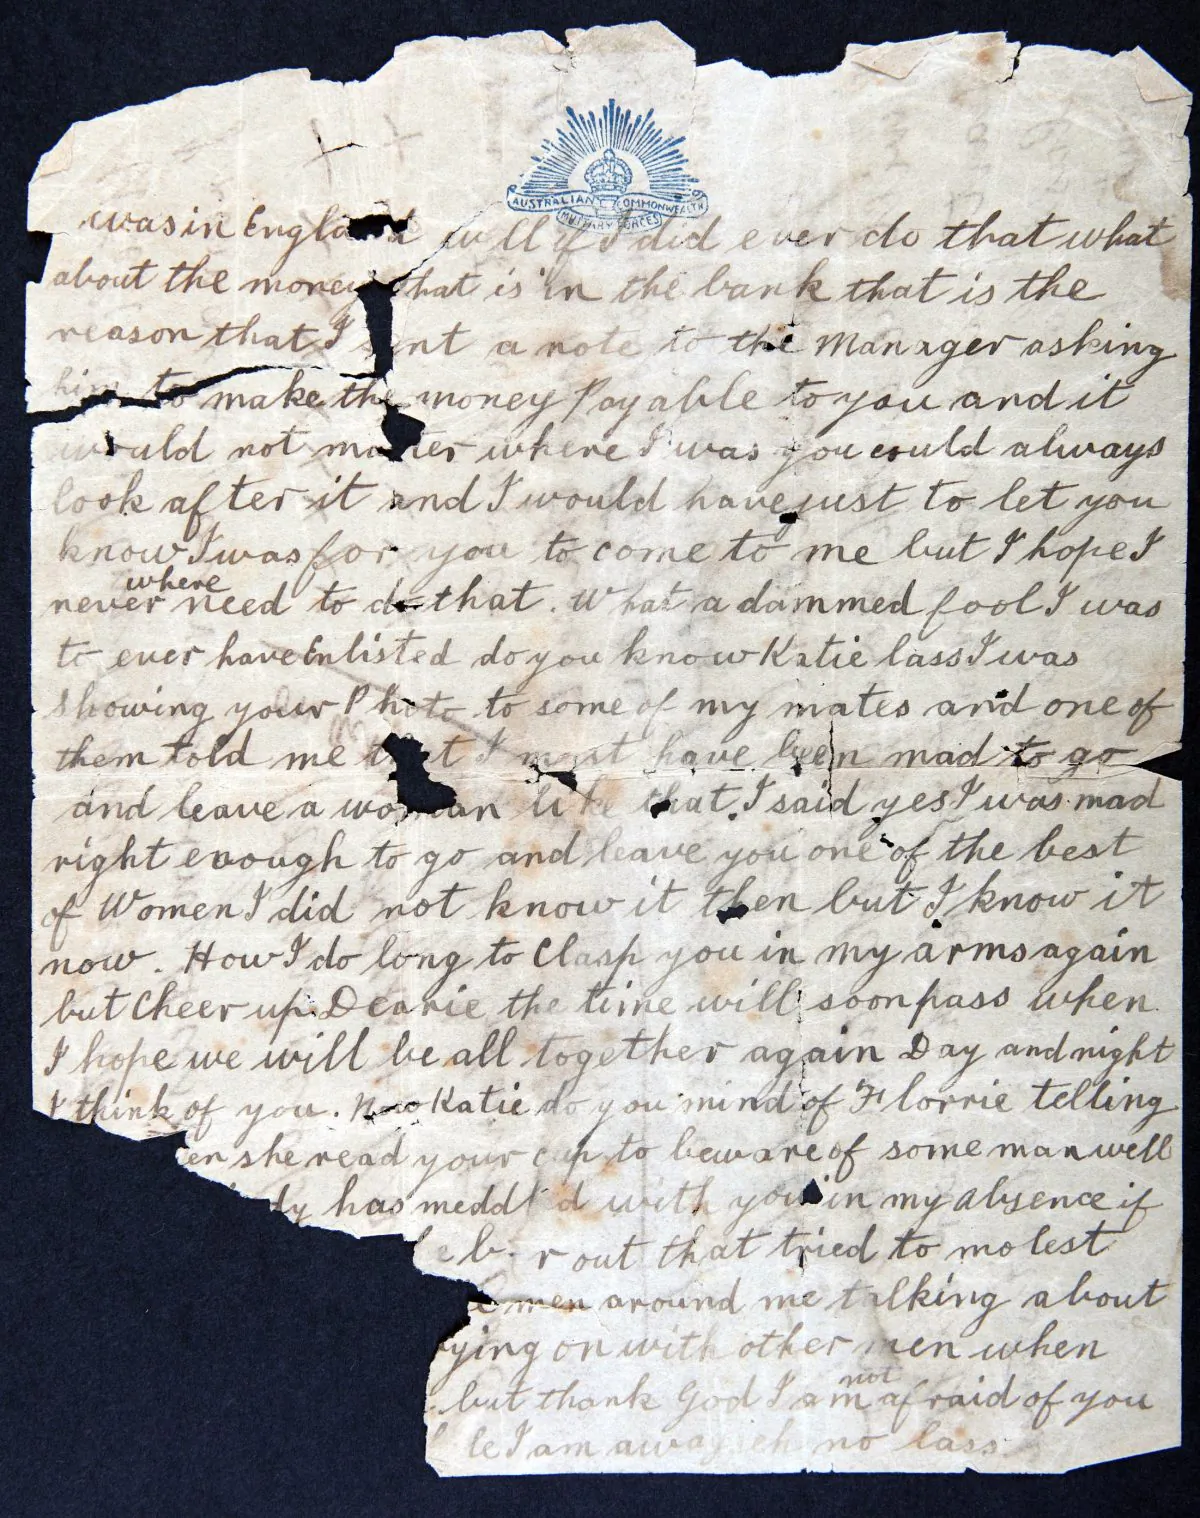 AUSTRALIAN COMMONWEALTH
MILITARY FORCES
was in England well if I did ever do that what
about the money that is in the bank that is the
reason that I sent a note to the Manager asking
him to make the money Payable to you and it
would not matter where I was you could always
look after it and I would have just to let you
know I was for you to come to me but I hope I
where
never need to do that. What a dammed fool I was
to ever have Enlisted do you know Katie lass I was
showing your Photo to some of my mates and one of
them told me that I must have been mad to go
and leave a woman like that. I said yes I was mad
right enough to go and leave you one of the best
of Women I did not know it then but I know it
now. How I do long to Clasp you in my arms again
but Cheer up Dearie the time will soon pass when
I hope we will be all together again Day and night
I think of you. Now Katie do you mind of Florrie telling
en she read your cup to beware of some man well
dy has meddled with you in my absence if
out that tried to molest
men around me talking about
ying on with other men when
not
but thank God I am afraid of you
le I am away eh no lass